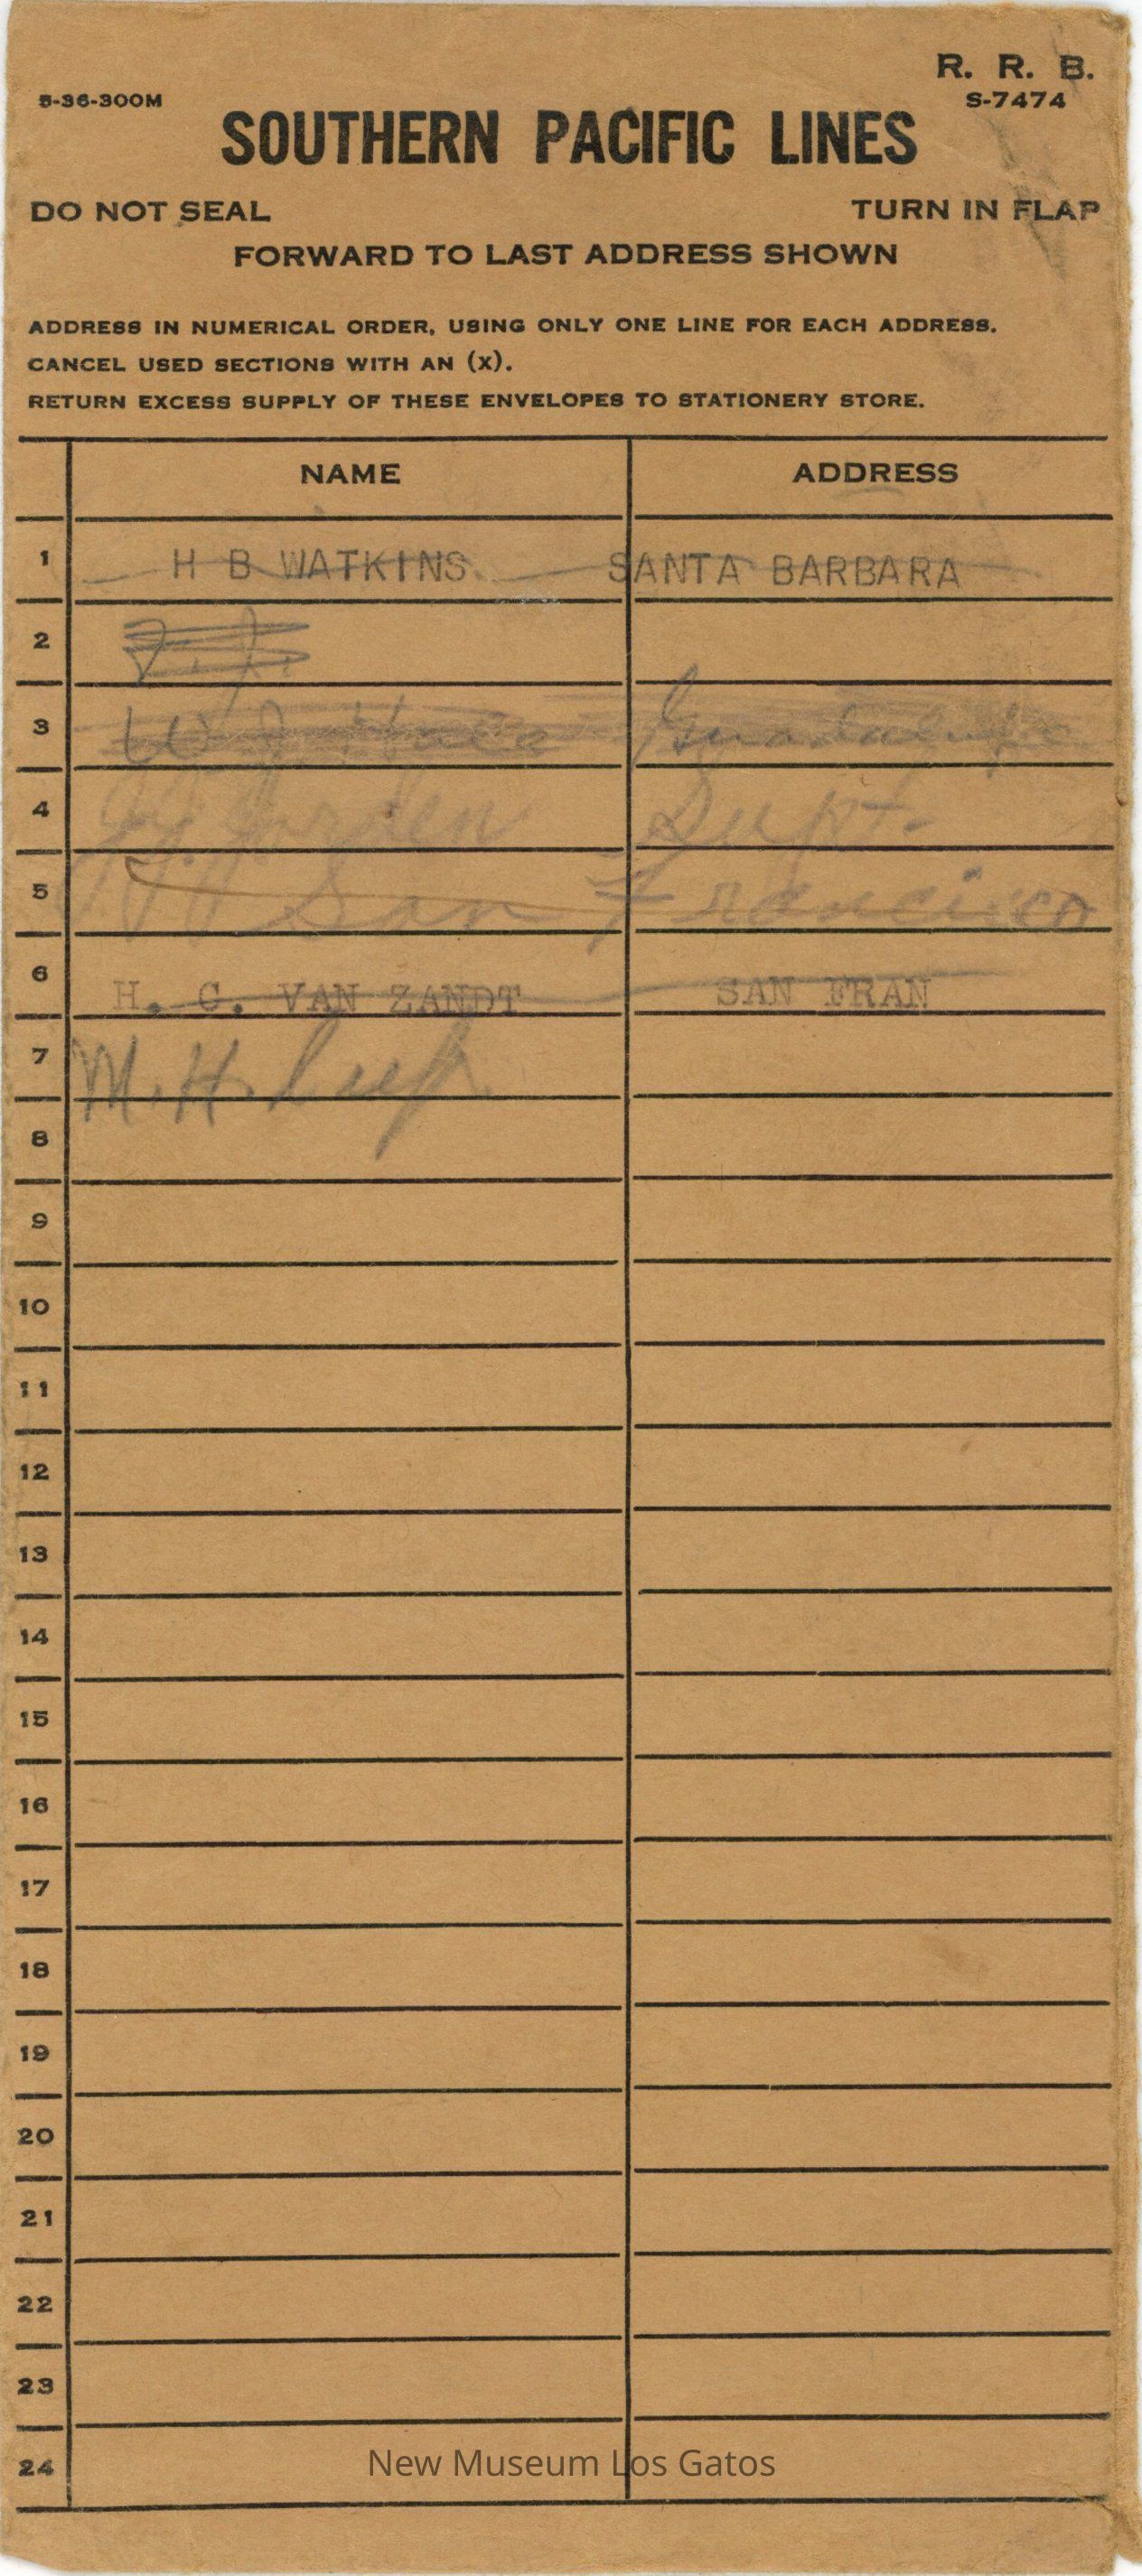 R. R. B.
5-36-300M
S-7474
SOUTHERN PACIFIC LINES
DO NOT SEAL
TURN IN FLAP
FORWARD TO LAST ADDRESS SHOWN
ADDRESS IN NUMERICAL ORDER, USING ONLY ONE LINE FOR EACH ADDRESS.
CANCEL USED SECTIONS WITH AN (X).
RETURN EXCESS SUPPLY OF THESE ENVELOPES TO STATIONERY STORE.
NAME ADDRESS
1 H B WATKINS SANTA BARBARA
2
3 Guadalupe
4 Supt.
5 San Francisco
6 H. C. VAN ZANDT SAN FRAN
7 M. H.
8
9
10
11
12
13
14
15
16
17
18
19
20
21
22
23
24 New Museum Los Gatos